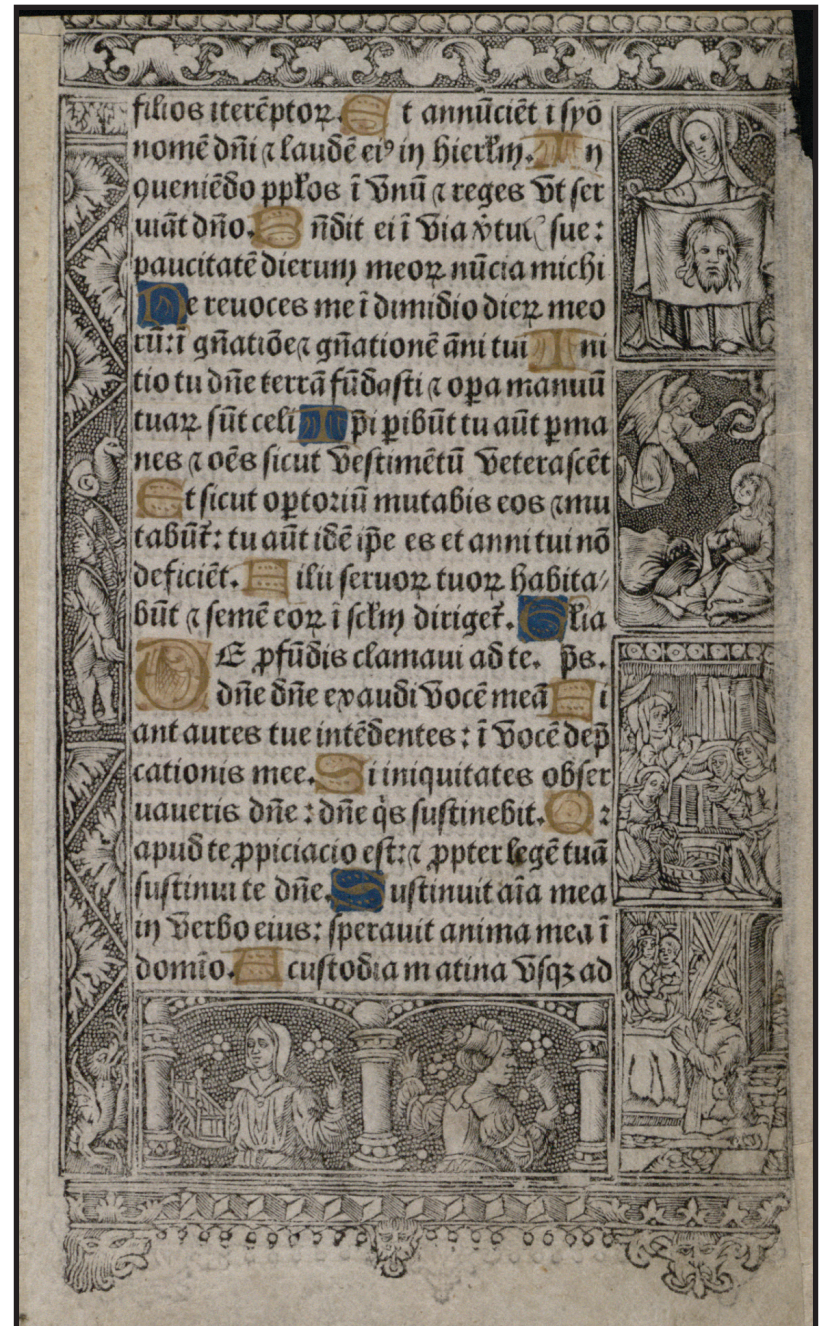 filios iterēptoꝝ. Et annūciēt ī syō
nomē dn̄i ⁊ laudē eiꝰ in hierꝉm. In
ꝯueniēdo ppꝉos ī vnū ⁊ reges vt ser
uiāt dn̄o. Rn̄dit ei ī via v̾tutꝭ sue:
paucitatē dierum meoꝝ nūcia michi
Ne reuoces me ī dimidio dieꝝ meo
rū: ī gn̄atiōe ⁊ gn̄ationē āni tui Ini
tio tu dn̄e terrā fūdasti ⁊ oꝑa manuū
tuaꝝ sūt celi Ip̄i ꝑibūt tu aūt ꝑma
nes ⁊ oēs sicut vestimētū veterascēt
Et sicut oꝑtoriū mutabis eos ⁊ mu
tabūt᷑: tu aūt idē ip̄e es et anni tui nō
deficiēt. Filii seruoꝝ tuoꝝ habita/
būt ⁊ semē eoꝝ ī scꝉm diriget᷑. Gꝉia
DE ꝓfūdis clamaui ad te. p̄s.
dn̄e dn̄e exaudi vocē meā Fi
ant aures tue intēdentes: ī vocē dep̄
cationis mee. Si iniquitates obser
uaueris dn̄e: dn̄e q̇s sustinebit. Qꝛ
apud te ꝓpiciacio est: ⁊ ꝓpter legē tuā
sustinui te dn̄e. Sustinuit aīa mea
in verbo eius: sperauit anima mea ī
domīo. A custodia matina vsqꝫ ad